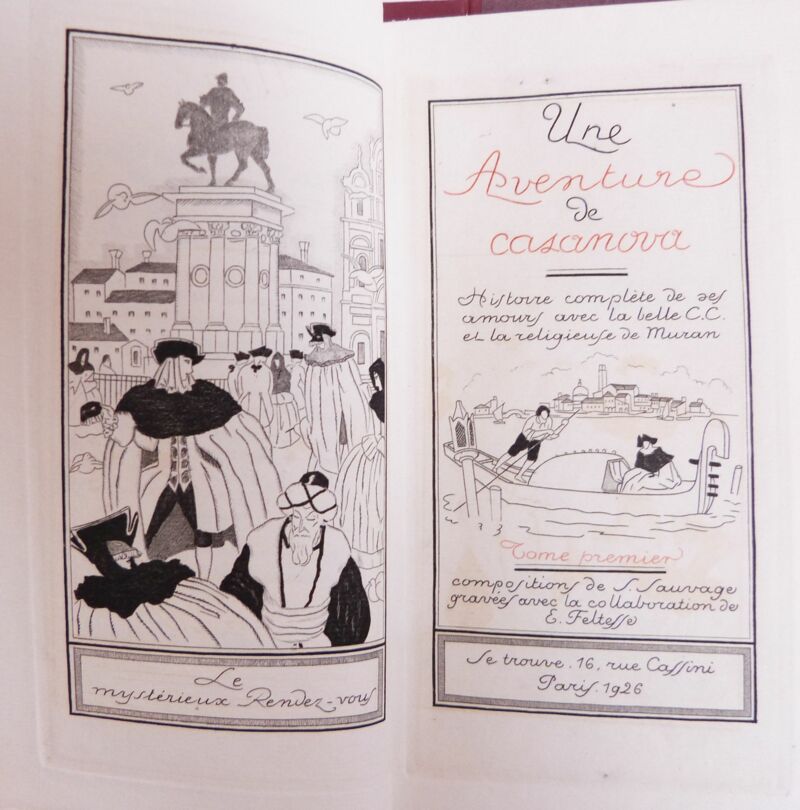 Le
mystérieux Rendez-vous
Une
Aventure
de
casanova
Histoire complète de ses
amours avec la belle C.C.
et la religieuse de Muran
Tome premier
compositions de S. Sauvage
gravées avec la collaboration de
E. Feltesse
Se trouve. 16, rue Cassini
Paris. 1926